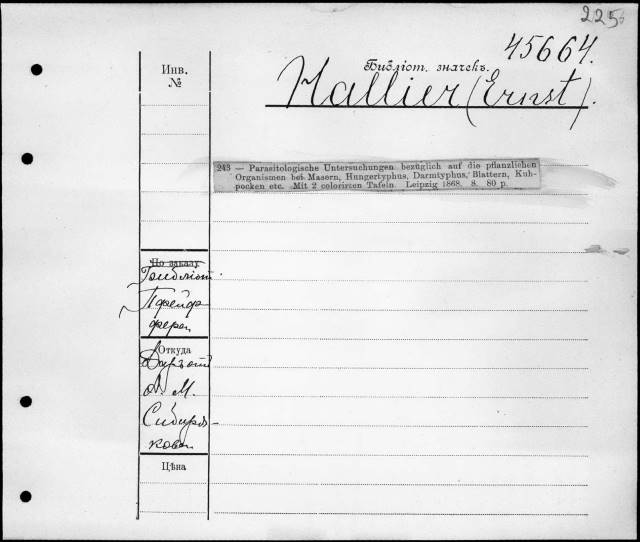 225
45664.
Инв.
№
Библіот. значекъ.
Hallier (Ernst).
243 — Parasitologische Untersuchungen bezüglich auf die pflanzlichen
Organismen bei Masern, Hungertyphus, Darmtyphus, Blattern, Kuh-
pocken etc. Mit 2 colorirten Tafeln. Leipzig 1868. 8. 80 p.
По заказу
Пфейф
фера
Откуда
Даръ отъ
А. М.
Сибиря-
кова
Цѣна